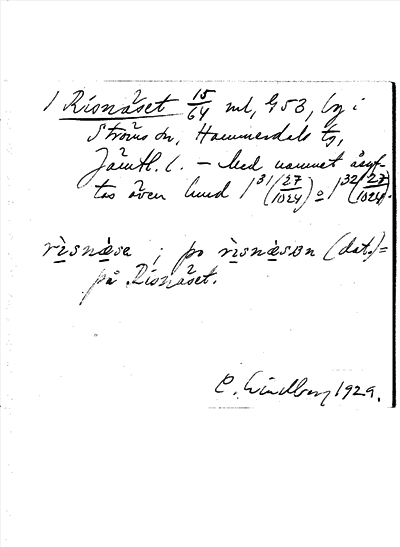 1 Risnäset 15/64 ml, G 53, by i
Ströms sn, Hammerdals tg,
Jämtl. l. – Med namnet åsyf-
tas även lund 1³¹(27/1024) o 1³²(27/1024).
rìsnæsa ; po rìsnæsen (dat.)=
på Risnäset.
C. Lindberg 1929.